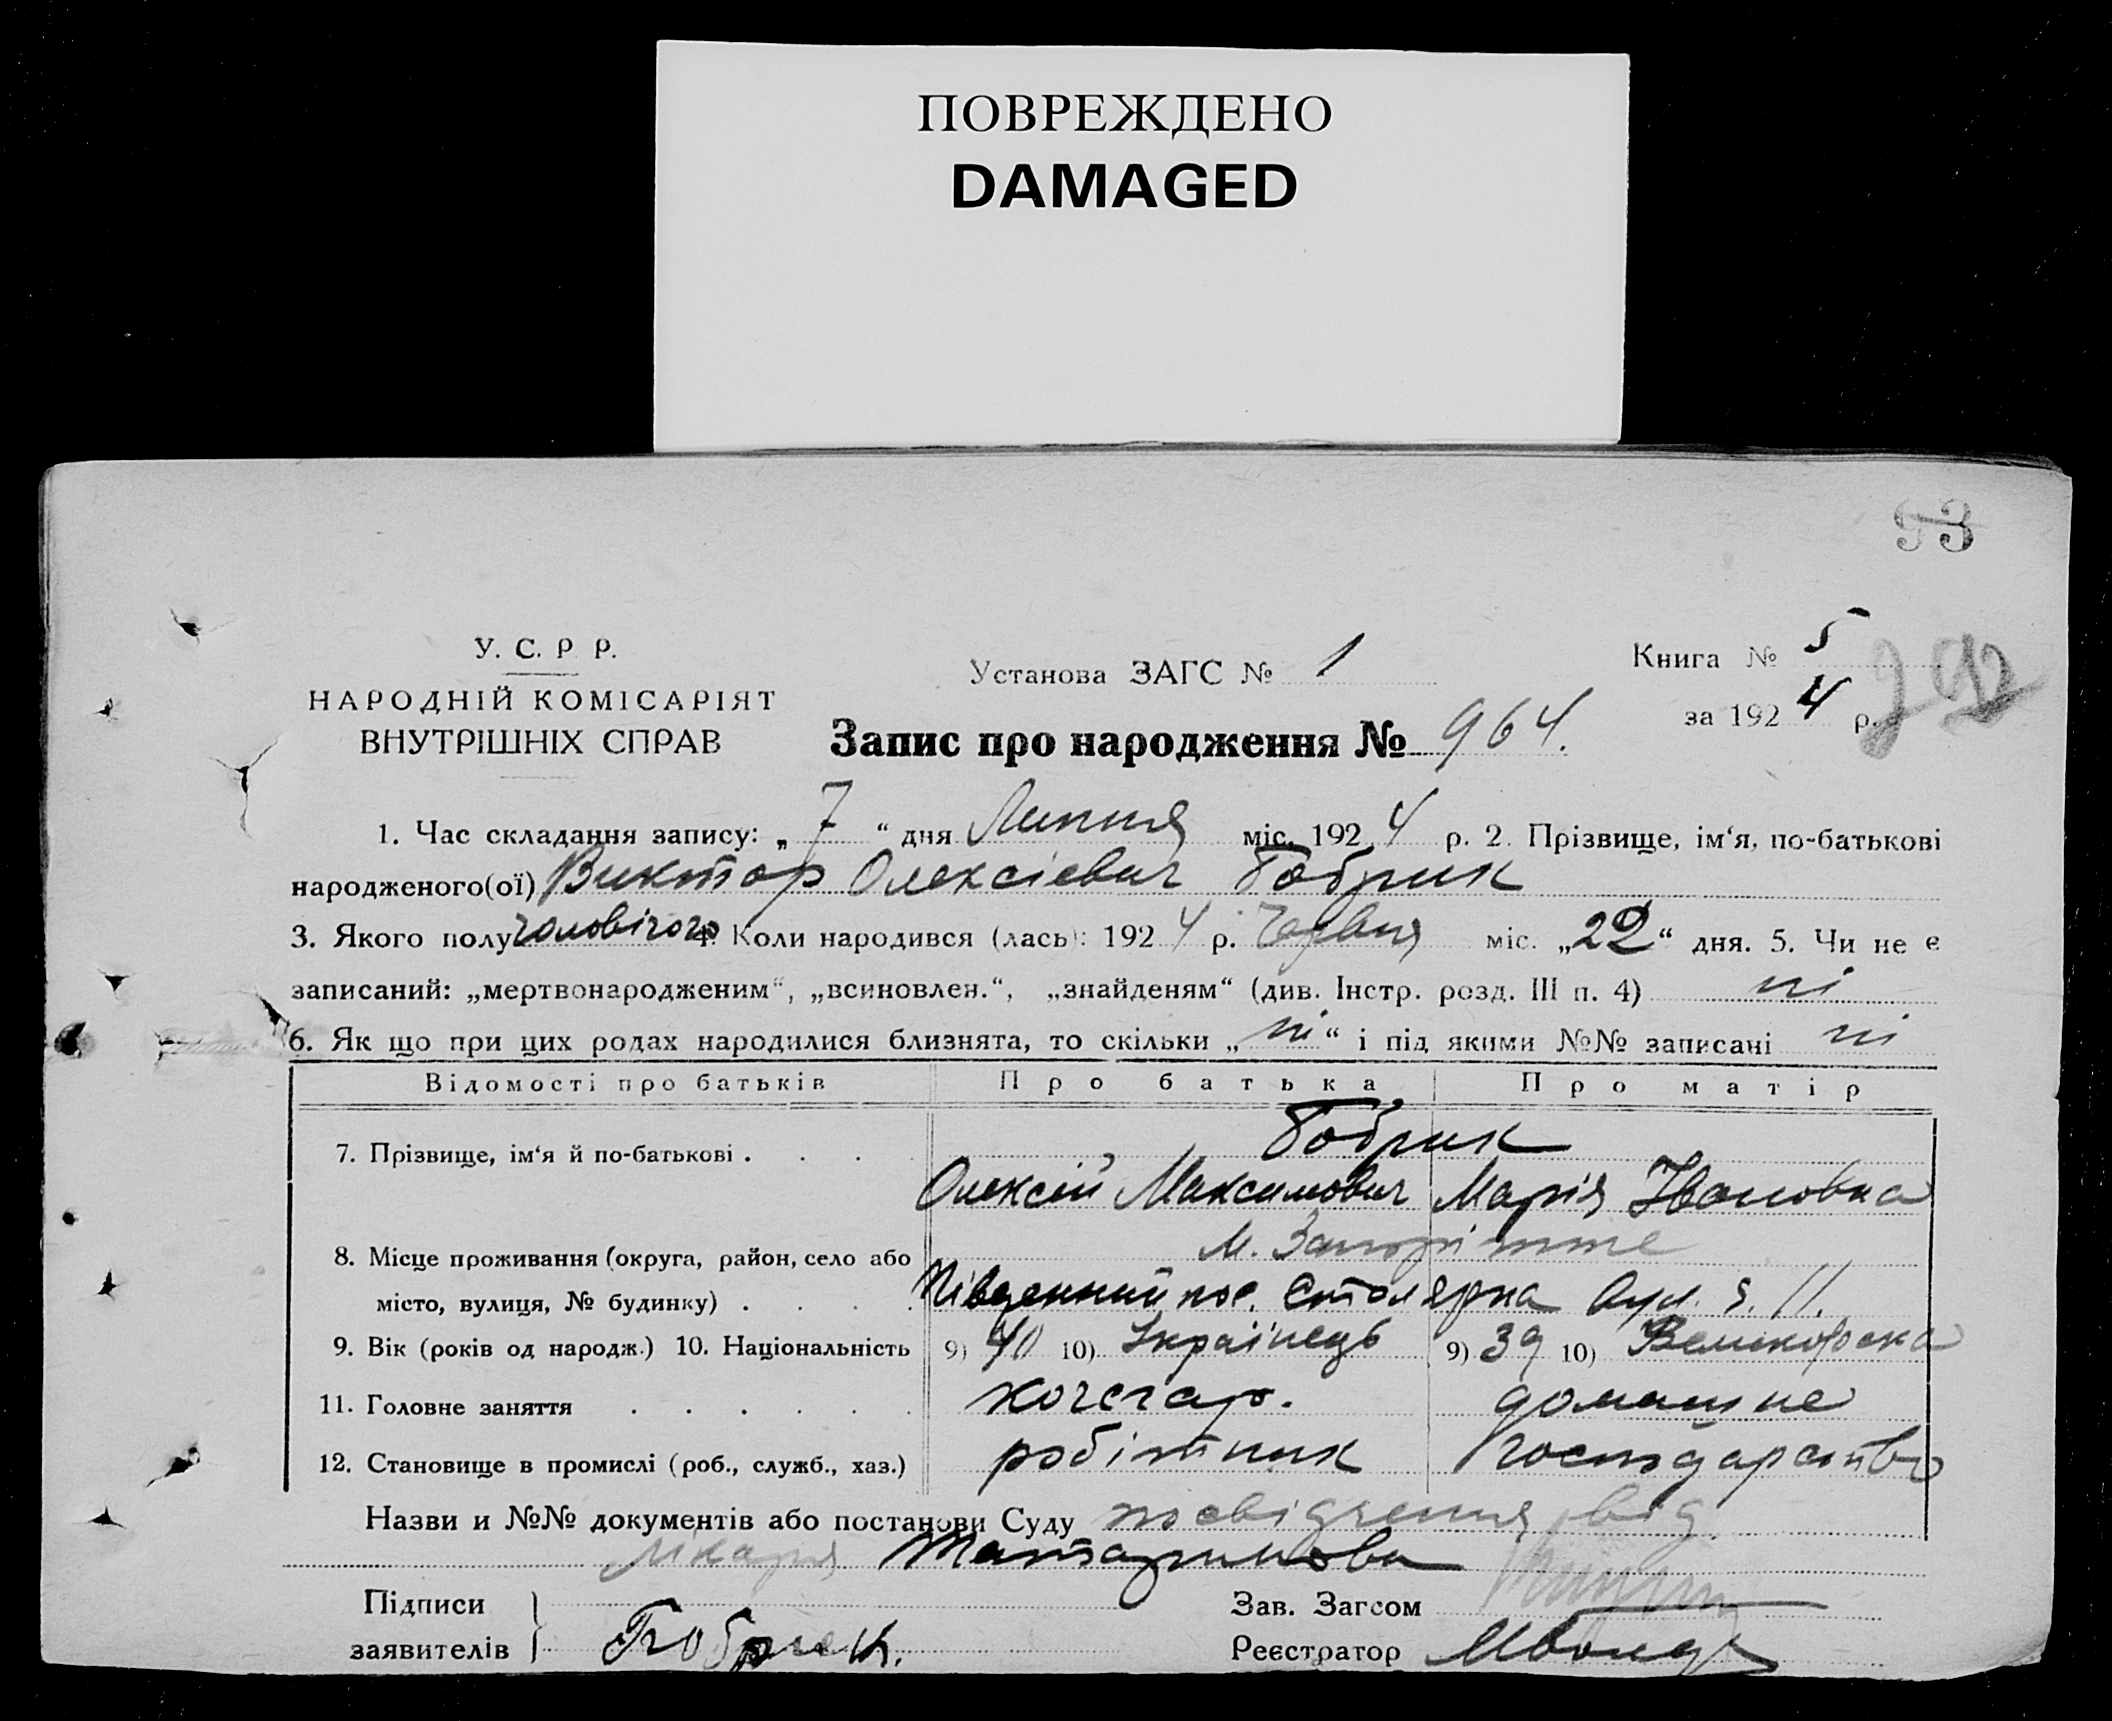 ПОВРЕЖДЕНО
DAMAGED
53
У. С. Р. Р.
НАРОДНІЙ КОМІСАРІЯТ
ВНУТРІШНІХ СПРАВ
Установа ЗАГС № 1
Книга № 5
за 1924 р.
292
Запис про народження № 964.
1. Час складання запису: „7“ дня Липня міс. 1924 р. 2. Прізвище, ім‘я, по-батькові
народженого(ої) Виктор Олексієвич Бобрик
3. Якого полу чоловічого 4. Коли народився (лась): 1924 р. Червня міс. „22“ дня. 5. Чи не є
записаний: „мертвонародженим“, „всиновлен.“, „знайденям“ (див. Інстр. розд. III п. 4) ні
6. Як що при цих родах народилися близнята, то скільки „ні“ і під якими №№ записані ні
Відомості про батьків Про батька Про матір
7. Прізвище, ім‘я й по-батькові . . . . Бобрик
Олексій Максимович Марія Івановна
8. Місце проживання (округа, район, село або М. Запоріжже
місто, вулиця, № будинку) . . . . Південний пос. Столярна вул. 5. 11.
9. Вік (років од народж.) 10. Національність 9) 40 10) Українець 9) 39 10) Великороска
11. Головне заняття . . . . . . кочегар. домашне
12. Становище в промислі (роб., служб., хаз.) робітник господарство
Назви и №№ документів або постанови Суду посвідчення від
лікаря Татаринова
Підписи
заявителів } Бобрик.
Зав. Загсом
Реєстратор